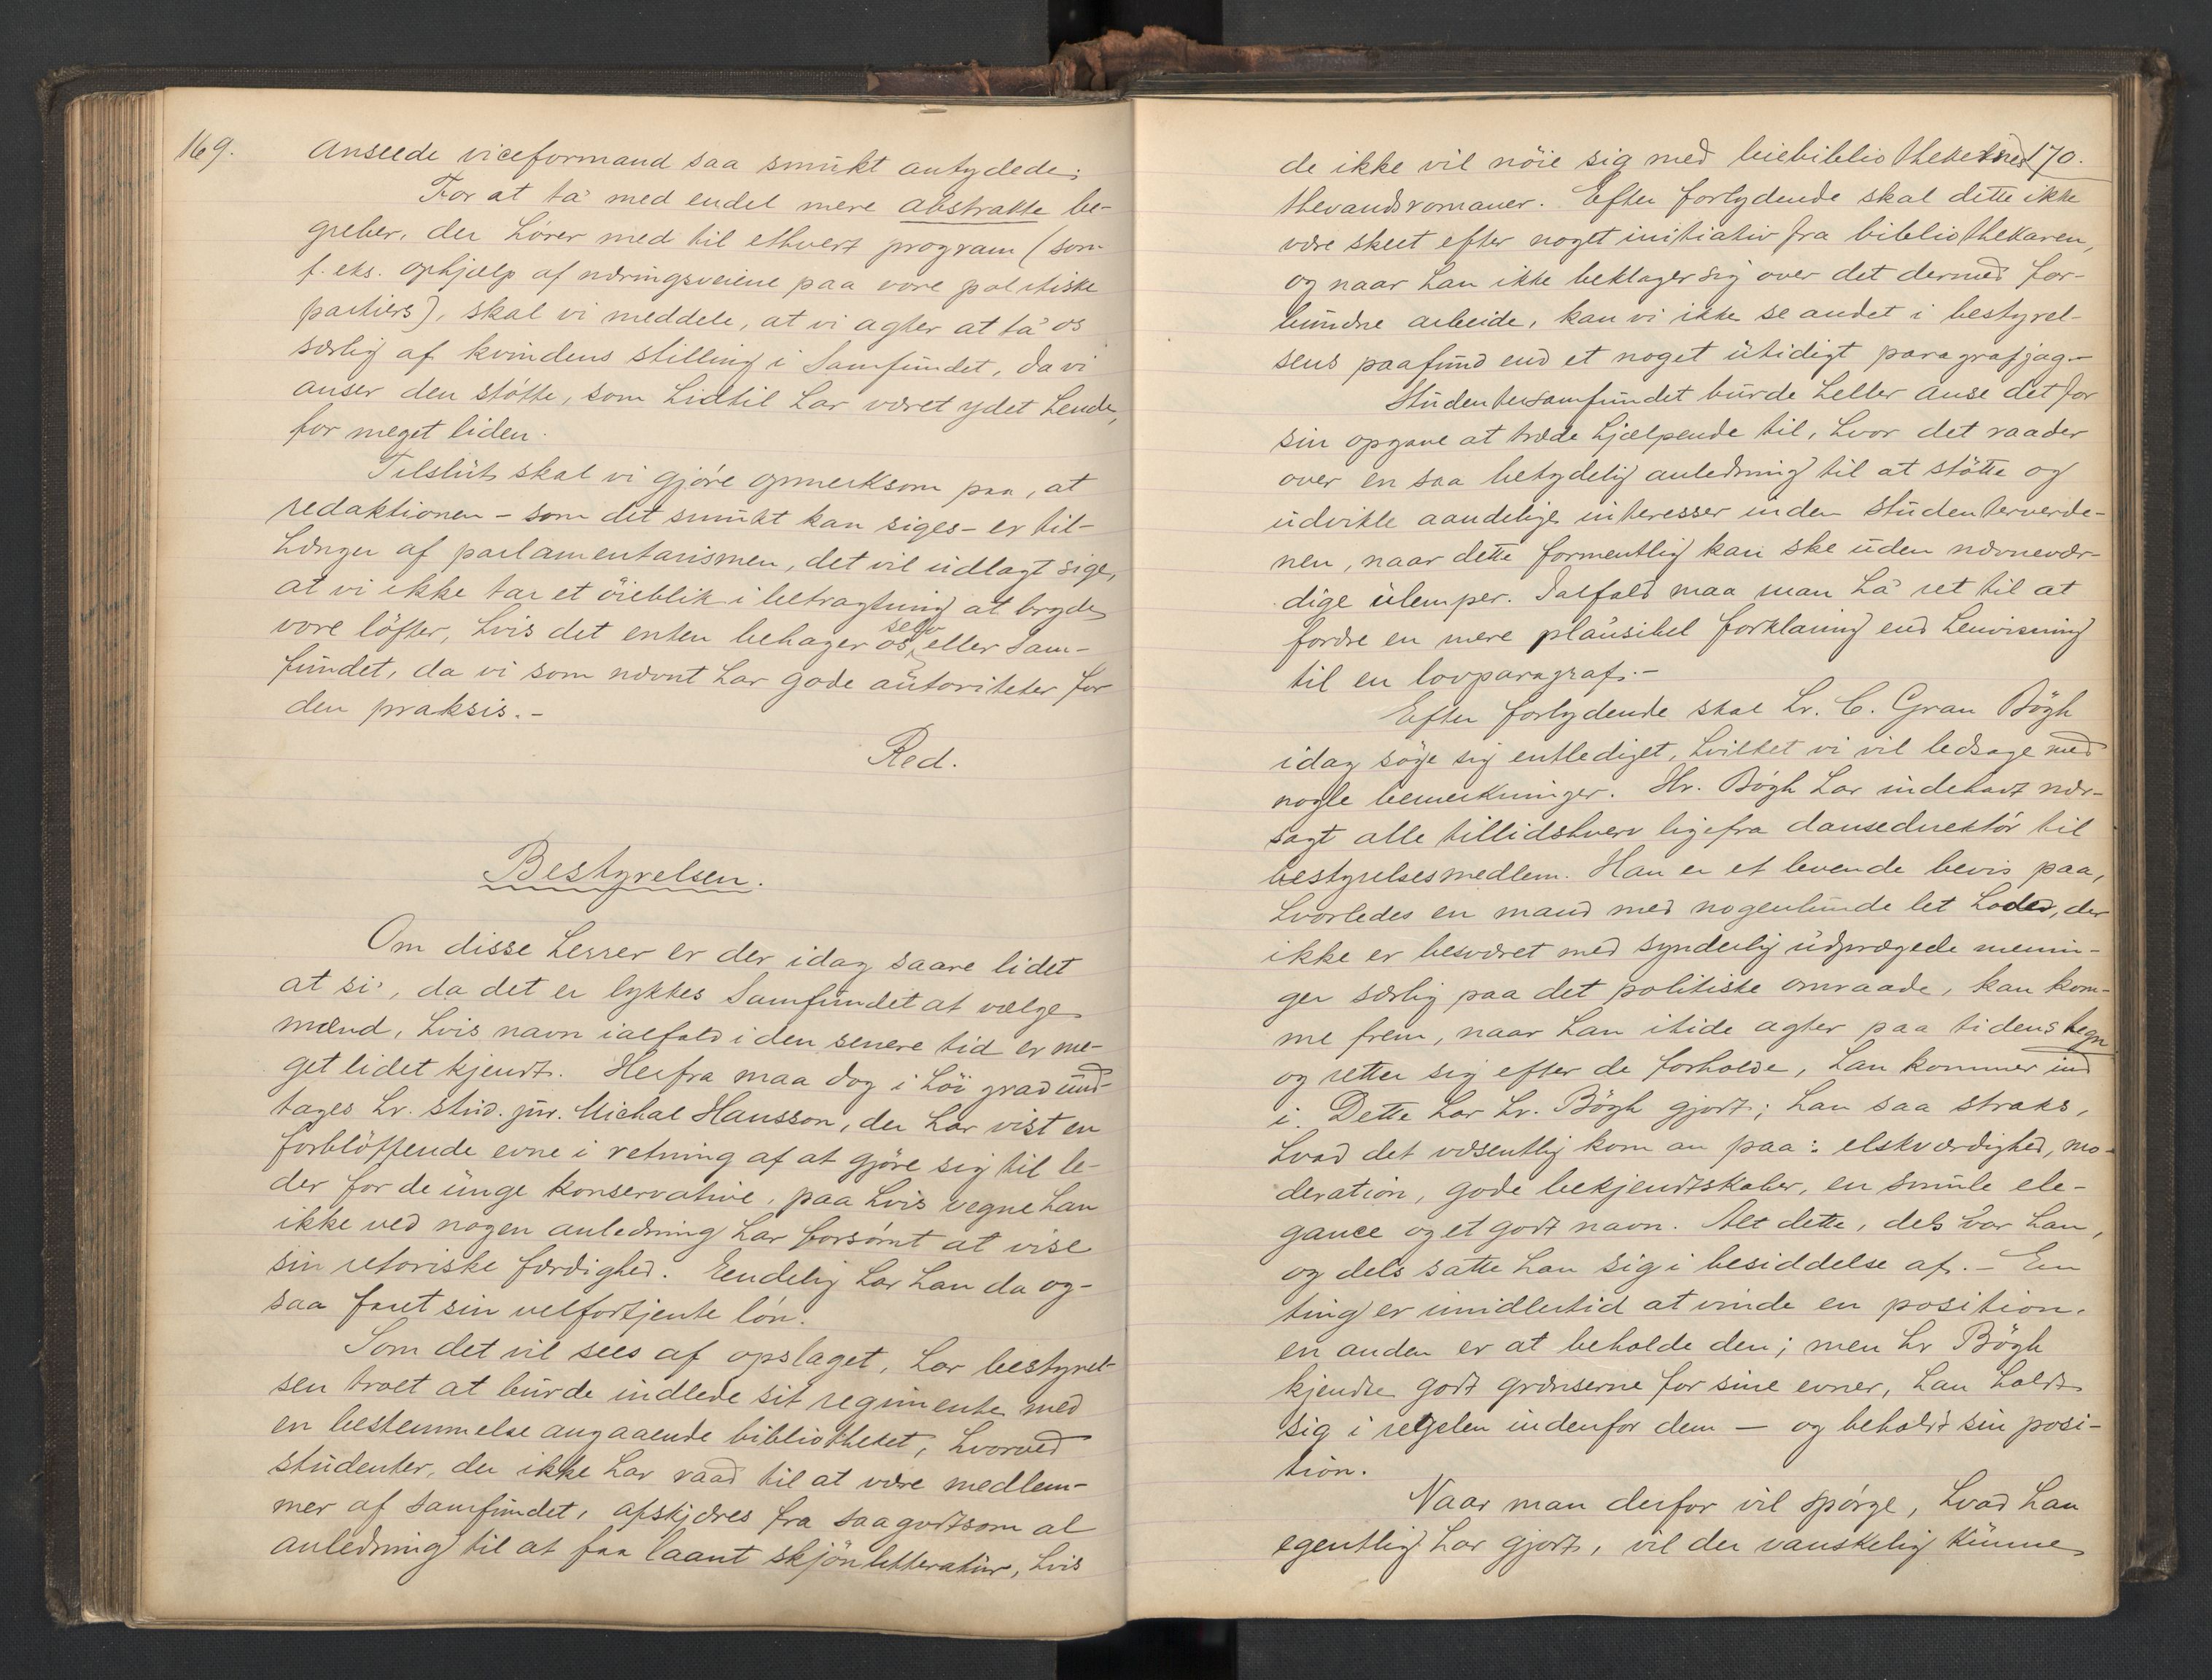 169.
anseede viceformand saa smukt antydede;
For at ta' med endel mere abstrakte be-
greber, der hører med til ethvert program (som
f. eks. ophjælp af næringsveiene paa vore politiske
partiers), skal vi meddele, at vi agter at ta' os
særlig af kvindens stilling i Samfundet, da vi
anser den støtte, som hidtil har været ydet hende,
for meget liden.
Tilslut skal vi gjøre opmerksom paa, at
redaktionen – som det smukt kan siges – er til-
hænger af parlamentarismen, det vil udlagt sige,
at vi ikke tar et öieblik i betragtning at bryde
vore löfter, hvis det enten behager os selv eller Sam-
fundet, da vi som nævnt har gode autoriteter for
den praksis. –
Red.
Bestyrelsen.
Om disse herrer er der idag saare lidet
at si', da det er lykkes Samfundet at vælge
mænd, hvis navn ialfald i den senere tid er me-
get lidet kjendt. Herfra maa dog i höi grad und-
tages hr. stud. jur. Michal Hansson, der har vist en
forblöffende evne i retning af at gjöre sig til le-
der for de unge konservative, paa hvis vegne han
ikke ved nogen anledning har forsömt at vise
sin retoriske færdighed. Eendelig har han da og-
saa faaet sin velfortjente lön.
Som det vil sees af opslaget, har bestyrel-
sen troet at burde indlede sit regimente med
en bestemmelse angaaende bibliotheket, hvorved
studenter, der ikke har raad til at være medlem-
mer af Samfundet, afskjæres fra saagodtsom al
anledning til at faa laant skjönlitteratur, hvis
170.
de ikke vil nöie sig med leiebibliothekernes
thevandsromaner. Efter forlydende skal dette ikke
være skeet efter noget initiativ fra bibliothekaren,
og naar han ikke beklager sig over det dermed for-
bundne arbeide, kan vi ikke se andet i bestyrel-
sens paafund end et noget utidigt paragrafjag. –
Studentersamfundet burde heller anse det for
sin opgave at træde hjælpende til, hvor det raader
over en saa betydelig anledning til at stötte og
udvikle aandelige interesser inden studenterverde-
nen, naar dette formentlig kan ske uden nævnevær-
dige ulemper. Ialfald maa man ha' ret til at
fordre en mere plausibel forklaring end henvisning
til en lovparagraf. –
Efter forlydende skal hr. C. Gran Bögh
idag söge sig entlediget, hvilket vi vil ledsage med
nogle bemerkninger. Hr. Bögh har indehavt nær-
sagt alle tillidshverv ligefra dansedirektör til
bestyrelsesmedlem. Han er et levende bevis paa,
hvorledes en mand med nogenlunde let hoded, der
ikke er besværet med synderlig udprægede menin-
ger særlig paa det politiske omraade, kan kom-
me frem, naar han itide agter paa tidens tegn
og retter sig efter de forholde, han kommer ind
i. Dette har hr. Bögh gjort; han saa straks,
hvad det væsentlig kom an paa: elskværdighed, mo-
deration, gode bekjendtskaber, en smule ele-
gance og et godt navn. Alt dette, dels var han,
og dels satte han sig i besiddelse af. – En
ting er imidlertid at vinde en position,
en anden er at beholde den; men hr Bögh
kjendte godt grænserne for sine evner, han holdt
sig i regelen indenfor dem – og beholdt sin posi-
tion.
Naar man derfor vil spörge, hvad han
egentlig har gjort, vil der vanskelig kunne